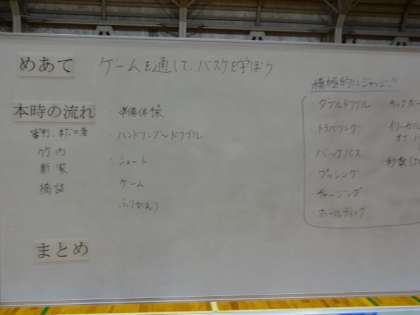 めあて ゲームを通して、バスケを学ぼう
本時の流れ
・準備体操
・ハンドリング〜ドリブル
・シュート
・ゲーム
・ふりかえり
審判、
竹内
新家
まとめ
積極的にジャッジ!!
ダブルドリブル
トラベリング
バックパス
プッシング
チャージング
ホールディング